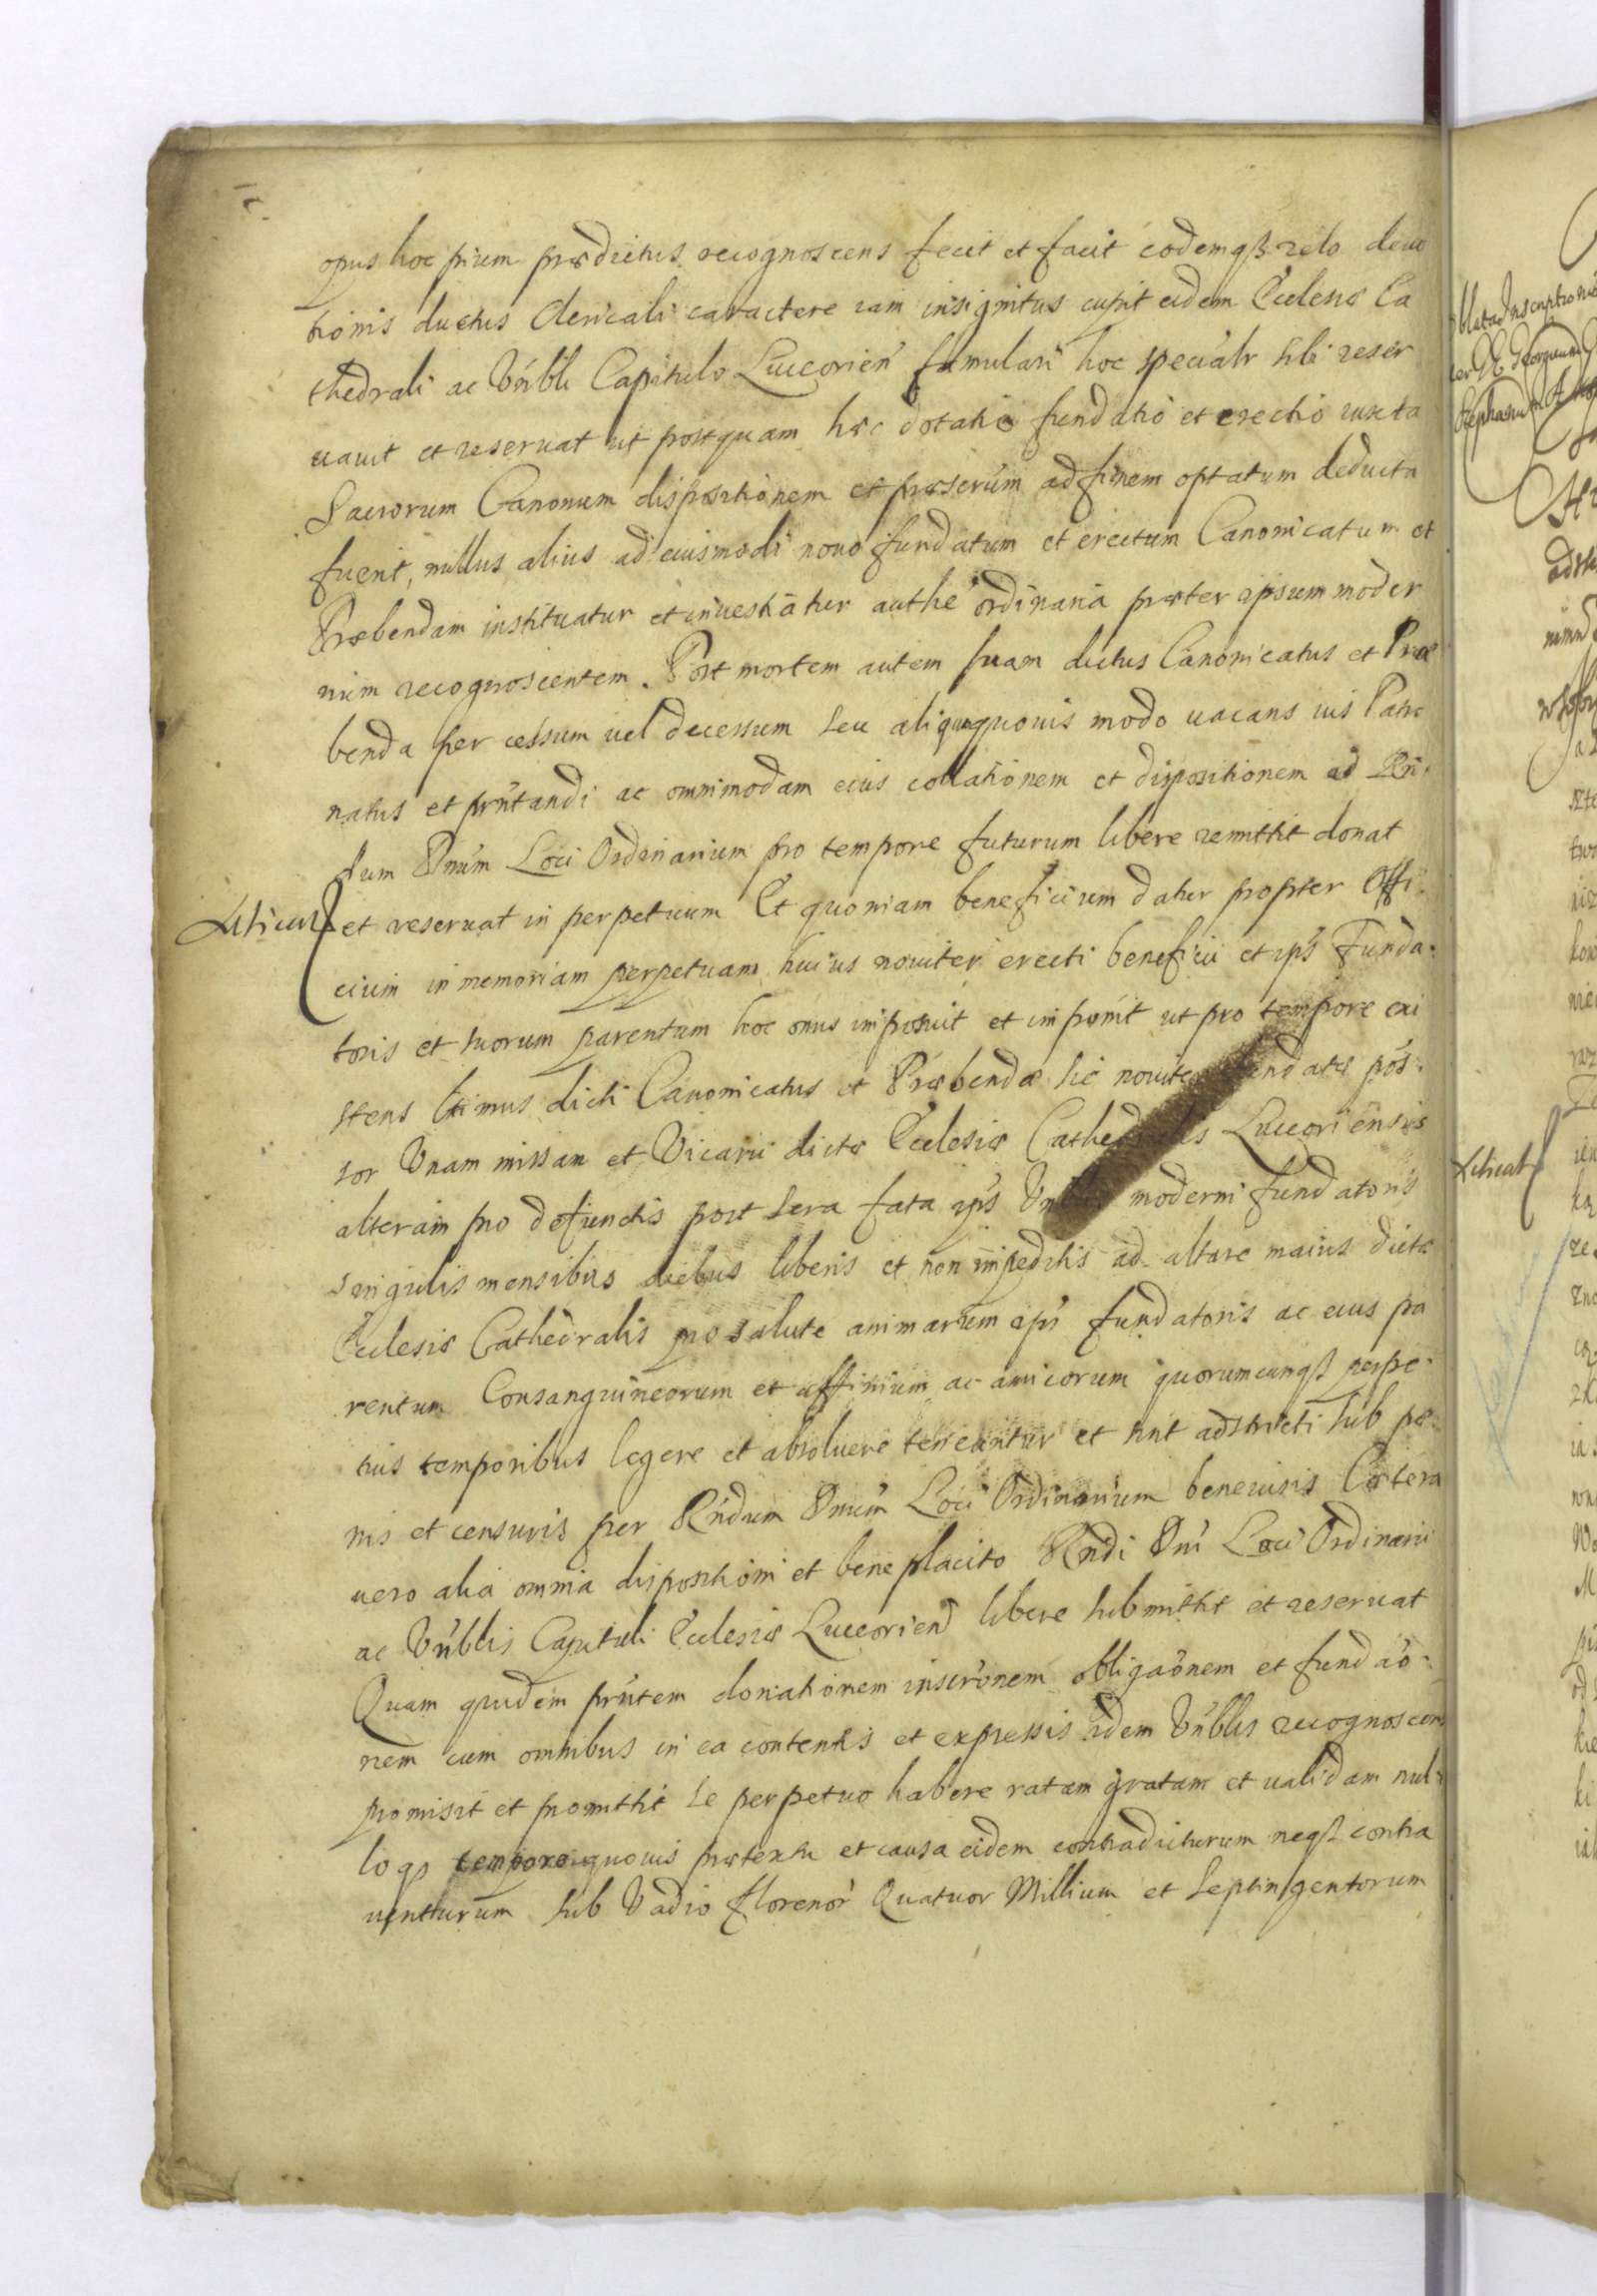 opus hoc pium prædictus recognoscens fecit et facit eodemqз zelo deuo
tionis ductus Clericali caractere iam insignitus cupit eidem Ecclesiæ Ca
thedrali ac Vnbli Capitulo Luceorien famulari hoc specialr sibi reser
uauit et reseruat ut postquam hæc dotatio fundatio et erectio iuxta
Sacrorum Canonum dispositionem et præserum ad finem optatum deducta
fuerit, nullus alius ad eiusmodi nouo fundatum et erectum Canonicatum et
Præbendam instituatur et inuestiatur authe ordinaria præter ipsum moder
num recognoscentem. Post mortem autem suam dictus Canonicatus et Præ
benda per cessum uel decessum seu aliqua quouis modo uacans ius Patro
natus et prntandi ac omnimodam eius collationem et dispositionem ad Rn
dum Dnum Loci Ordinarium pro tempore futurum libere remittit donat
et reseruat in perpetuum Et quoniam beneficium datur propter Offi
cium in memoriam perpetuam huius nouiter erecti beneficii et ips Funda
toris et suorum parentum hoc onus imposuit et imponit ut pro tempore exi
stens ltimus dicti Canonicatus et Præbendæ sic nouiter fundatæ pos
sor Vnam missam et Vicarii dictæ Ecclesiæ Cathedralis Luceoriensis
alteram pro defunctis post sera fata ips moderni fundatoris
singulis mensibus diebus liberis et non impeditis ad altare maius dictæ
Ecclesiæ Cathedralis pro salute animarum ips fundatoris ac eius pa
rentum Consanguineorum et affinium ac amicorum quorumcunqз perpe
tuis temporibus legere et absoluere teneantur et sint adstricti sub pæ
nis et censuris per Rndum Dnum Loci Ordinarium beneuisis Cætera
uero alia omnia dispositioni et beneplacito Rndi Dni Loci Ordinarii
ac Vnblis Capituli Ecclesiæ Luceorien libere submittit et reseruat
Quam quidem prntem donationem inscronem obligaonem et fundao
nem cum omnibus in ea contentis et expressis idem Vnblis recognoscens
promisit et promittit se perpetuo habere ratam gratam et ualidam nul
loqз tempore quouis prætextu et causa eidem contradicturum neqз contra
uenturum sub Vadio florenor Quatuor Millium et Septingentorum